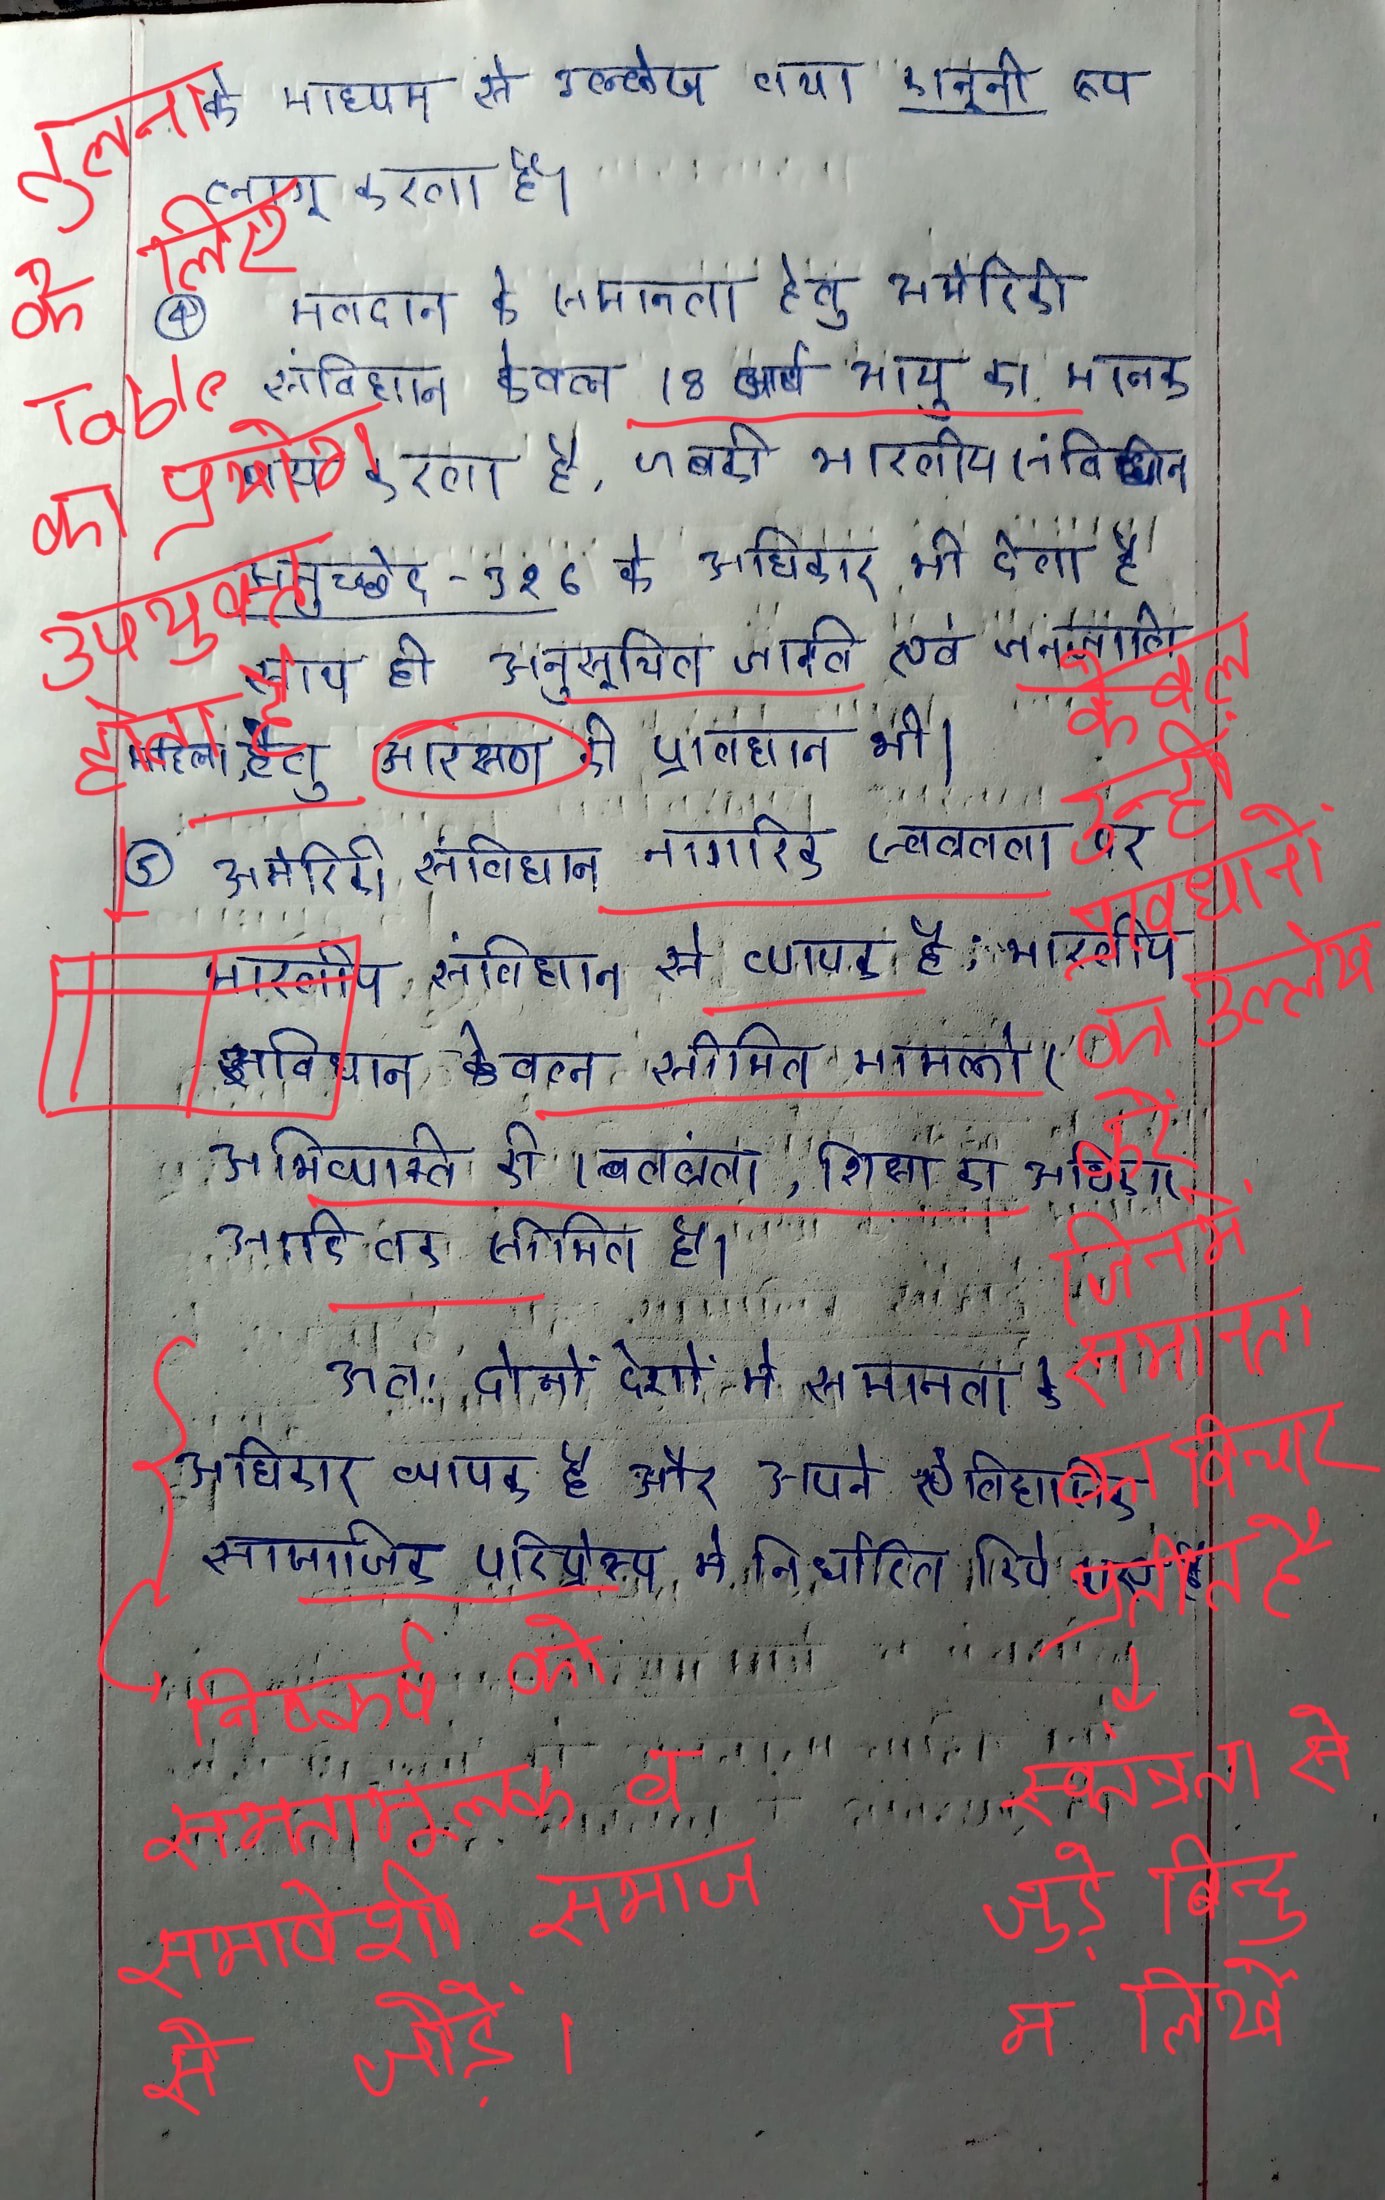 के माध्यम से उल्लेख तथा कानूनी रूप
लागू करता है।
④ मतदान के समानता हेतु अमेरिकी
संविधान केवल 18 वर्ष आयु का मानक
करता है, जबकी भारतीय संविधान
अनुच्छेद - 326 के अधिकार भी देता है
साथ ही अनुसूचित जाति एवं जनजाति
महिला, हेतु आरक्षण की प्रावधान भी।
⑤ अमेरिकी संविधान नागरिक स्वतंत्रता पर
भारतीय संविधान से व्यापक है; भारतीय
संविधान केवल सीमित मामलो
अभिव्यक्ति की स्वतंत्रता, शिक्षा का अधिकार
आदि तक सीमित है।
अतः दोनों देशों मे समानता के
अधिकार व्यापक है और अपने
सामाजिक परिप्रेक्ष्य मे निर्धारित किये गए हैं
तुलना
के लिए
Table
का प्रयोग
उपयुक्त
होता है
केवल
उन्हीं
प्रावधानों
का उल्लेख
करें
जिनमें
समानता
का विचार
प्रतीत है
स्वतंत्रता से
जुड़े बिन्दु
न लिखें
निष्कर्ष को
समतामूलक व
समावेशी समाज
से जोड़ें।